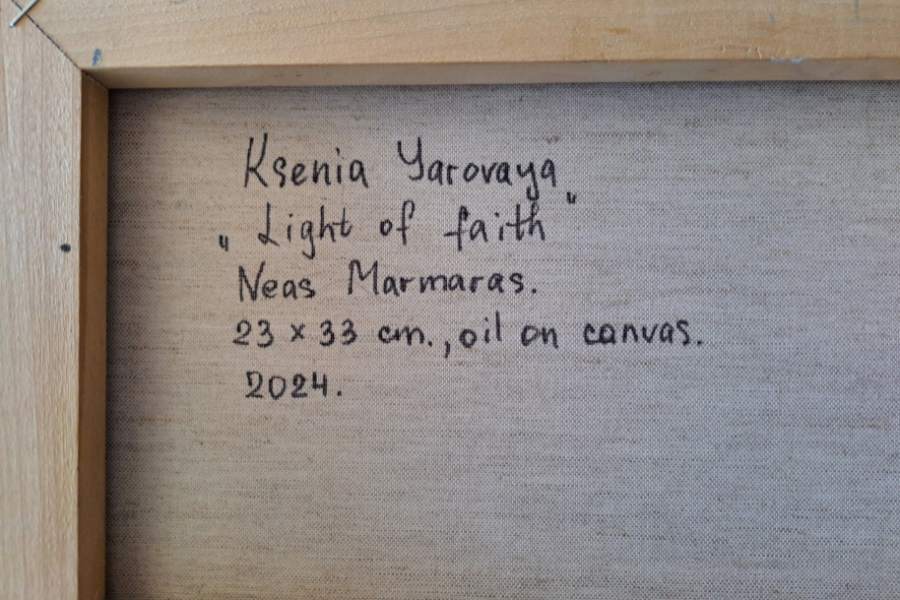 Ksenia Yarovaya
„Light of faith"
Neas Marmaras.
23 × 33 cm., oil on canvas.
2024.